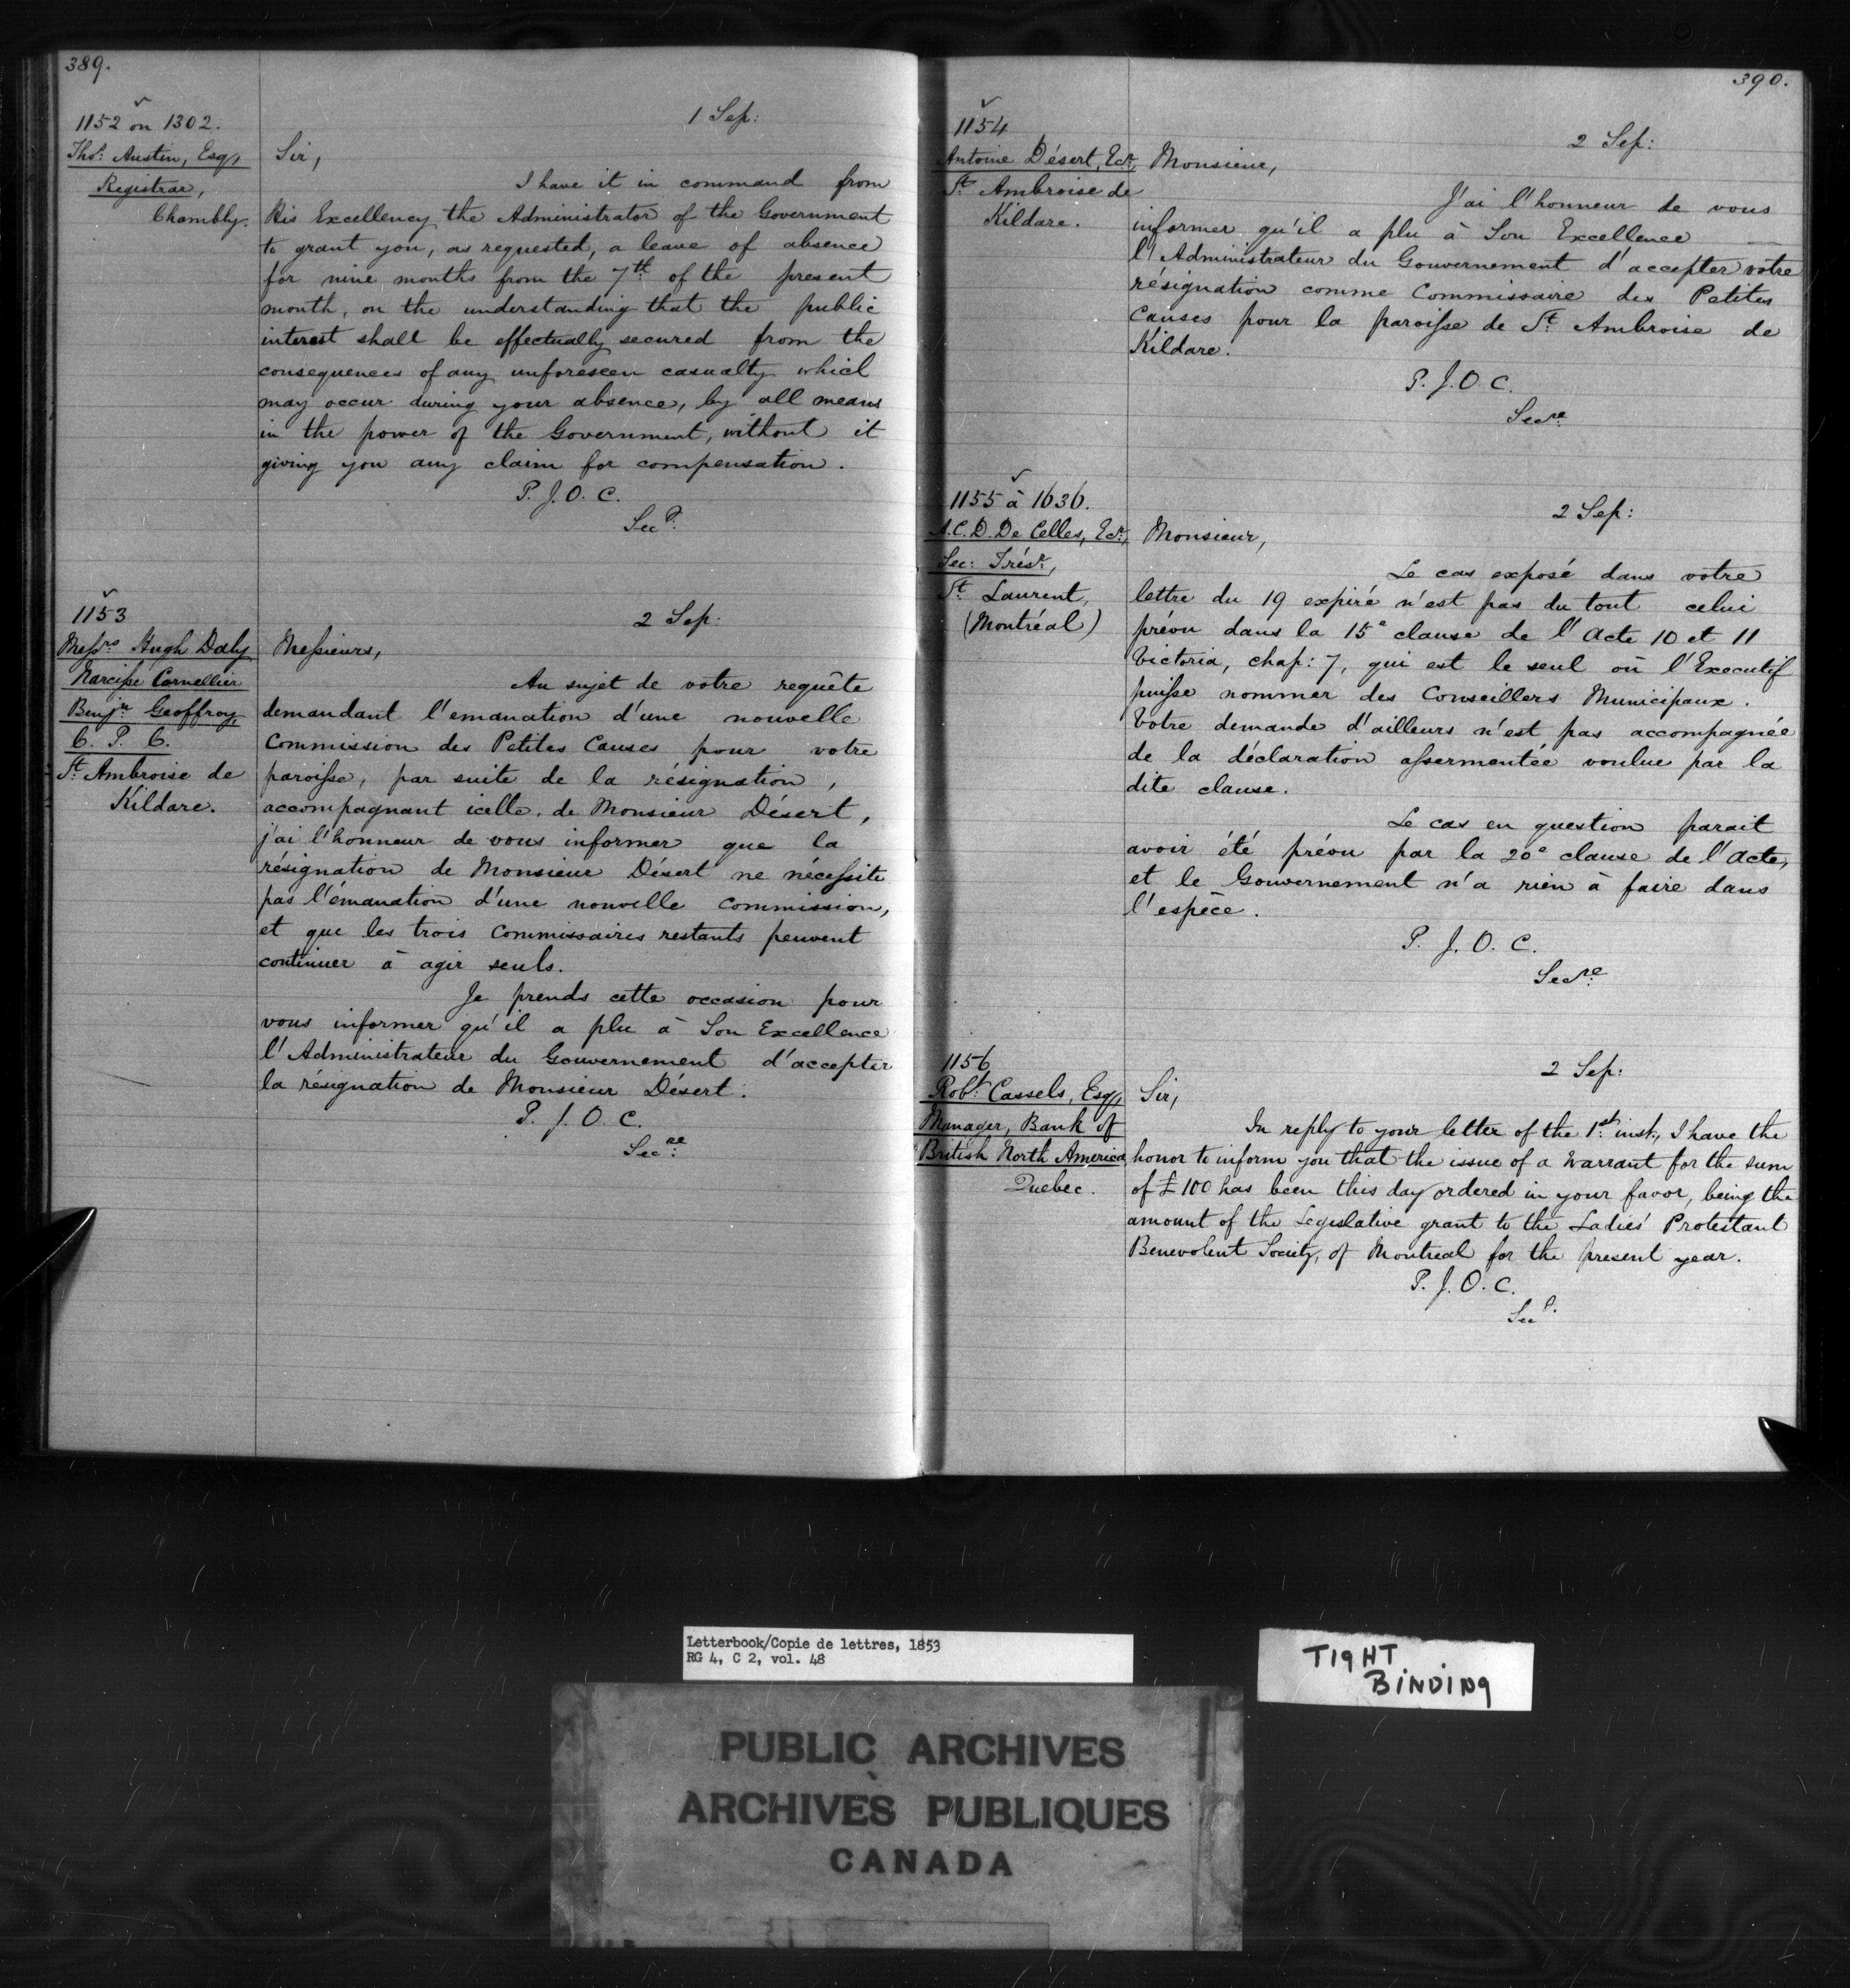 389.
1152 on 1302.
Thos. Austin, Esqr,
Registrar,
Chambly.
1 Sep:
Sir,
I have it in command from
His Excellency the Administrator of the Government
to grant you, as requested, a leave of absence
for nine months from the 7th of the present
month, on the understanding that the public
interest shall be effectually secured from the
consequences of any unforeseen casualty which
may occur during your absence, by all means
in the power of the Government, without it
giving you any claim for compensation.
P. J. O. C.
Secy.
1153
Messrs Hugh Daly
Narcisse Cornellier
Benjn Geoffroy,
C. P. C.
St Ambroise de
Kildare.
2 Sep:
Messieurs,
Au sujet de votre requête
demandant l'emanation d'une nouvelle
Commission des Petites Causes pour votre
paroisse, par suite de la résignation,
accompagnant icelle, de Monsieur Désert,
j'ai l'honneur de vous informer que la
résignation de Monsieur Désert ne nécessite
pas l'émanation d'une nouvelle commission,
et que les trois Commissaires restants peuvent
continuer à agir seuls.
Je prends cette occasion pour
vous informer qu'il a plu à Son Excellence
l'Administrateur du Gouvernement d'accepter
la résignation de Monsieur Désert.
P. J. O. C.
Secre
390.
1154
Antoine Désert, Ecr.
St Ambroise de
Kildare.
2 Sep:
Monsieur,
J'ai l'honneur de vous
informer qu'il a plu à Son Excellence
l'Administrateur du Gouvernement d'accepter votre
résignation comme Commissaire des Petites
Causes pour la paroisse de St Ambroise de
Kildare.
P. J. O. C.
Secre
1155 à 1636.
A. C. D. De Celles, Ecr,
Sec: Trésr,
St Laurent,
(Montréal)
2 Sep:
Monsieur,
Le cas exposé dans votre
lettre du 19 expiré n'est pas du tout celui
prévu dans la 15e clause de l'Acte 10 et 11
Victoria, chap: 7, qui est le seul où l'Executif
puisse nommer des Conseillers Municipaux.
Votre demande d'ailleurs n'est pas accompagnée
de la déclaration assermentée voulue par la
dite clause.
Le cas en question parait
avoir été prévu par la 20e clause de l'Acte,
et le Gouvernement n'a rien à faire dans
l'espèce.
P. J. O. C.
Secre
1156
Robt Cassels, Esqr,
Manager, Bank of
British North America,
Quebec.
2 Sep:
Sir,
In reply to your letter of the 1st inst, I have the
honor to inform you that the issue of a Warrant for the sum
of £100 has been this day ordered in your favor, being the
amount of the Legislative grant to the Ladies' Protestant
Benevolent Society, of Montreal for the present year.
P. J. O. C.
Secy.
Letterbook/Copie de lettres, 1853
RG 4, C 2, vol. 48
TIGHT
BINDING
PUBLIC ARCHIVES
ARCHIVES PUBLIQUES
CANADA